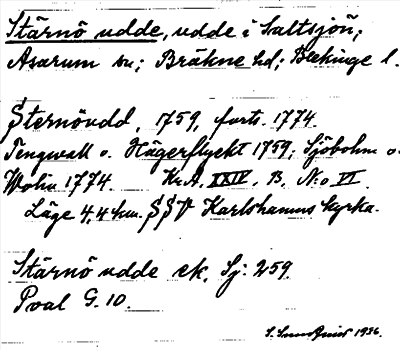 Stärnö udde, udde i Saltsjön;
Asarum sn; Bräkne hd; Blekinge l.
Sternöudd, 1759, forts. 1774.
Tengwall o. Hägerflyckt 1759; Sjöbohm o.
Wolin 1774. Kr.A. XXIV. B. N:o VI
Läge 4,4 km. SSV Karlshamns kyrka.
Stärnö udde ek. Sj. 259.
Poal G. 10.
1936.